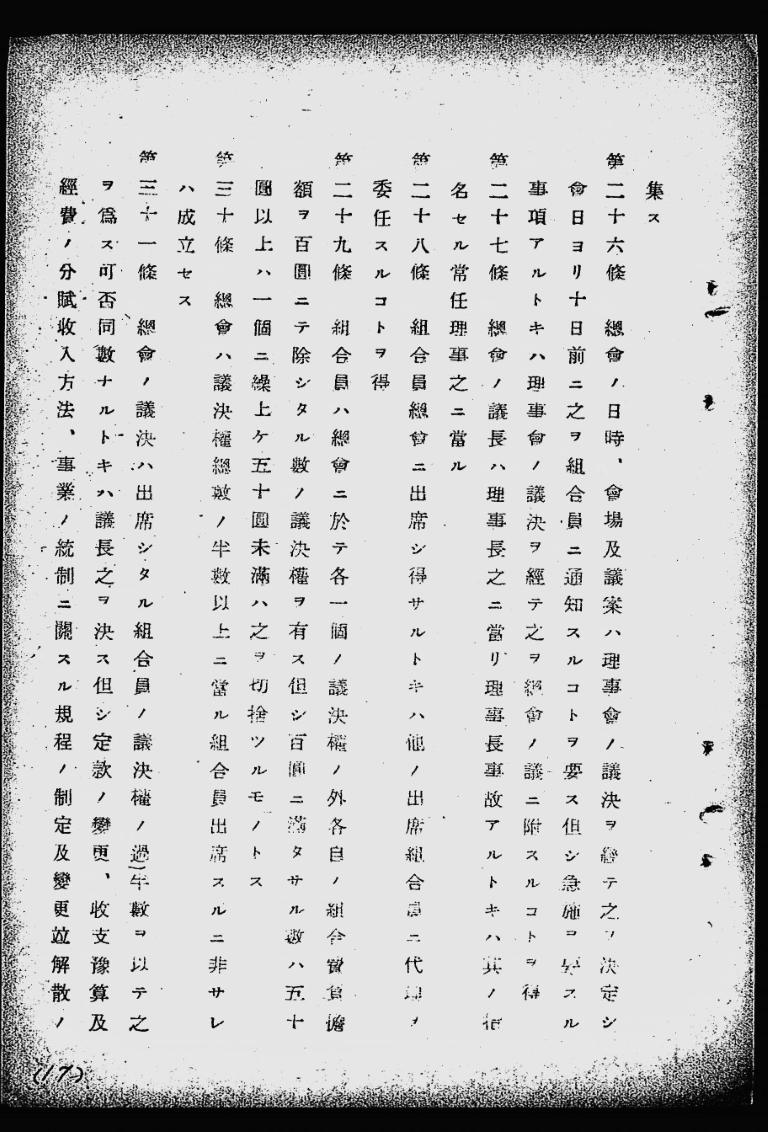 集ス
第二十六條 總會ノ日時、會場及議案ハ理事會ノ議決ヲ經テ之ヲ決定シ
會日ヨリ十日前ニ之ヲ組合員ニ通知スルコトヲ要ス但シ急施ヲ要スル
事項アルトキハ理事會ノ議決ヲ經テ之ヲ總會ノ議ニ附スルコトヲ得
第二十七條 總會ノ議長ハ理事長之ニ當リ理事長事故アルトキハ其ノ指
名セル常任理事之ニ當ル
第二十八條 組合員總會ニ出席シ得サルトキハ他ノ出席組合員ニ代理ヲ
委任スルコトヲ得
第二十九條 組合員ハ總會ニ於テ各一個ノ議決權ノ外各自ノ組合費負擔
額ヲ百圓ニテ除シタル數ノ議決權ヲ有ス但シ百圓ニ滿タサル數ハ五十
圓以上ハ一個ニ繰上ケ五十圓未滿ハ之ヲ切捨ツルモノトス
第三十條 總會ハ議決權總數ノ半數以上ニ當ル組合員出席スルニ非サレ
ハ成立セス
第三十一條 總會ノ議決ハ出席シタル組合員ノ議決權ノ過半數ヲ以テ之
ヲ爲ス可否同數ナルトキハ議長之ヲ決ス但シ定款ノ變更、收支豫算及
經費ノ分賦收入方法、事業ノ統制ニ關スル規程ノ制定及變更竝解散ノ
(17)